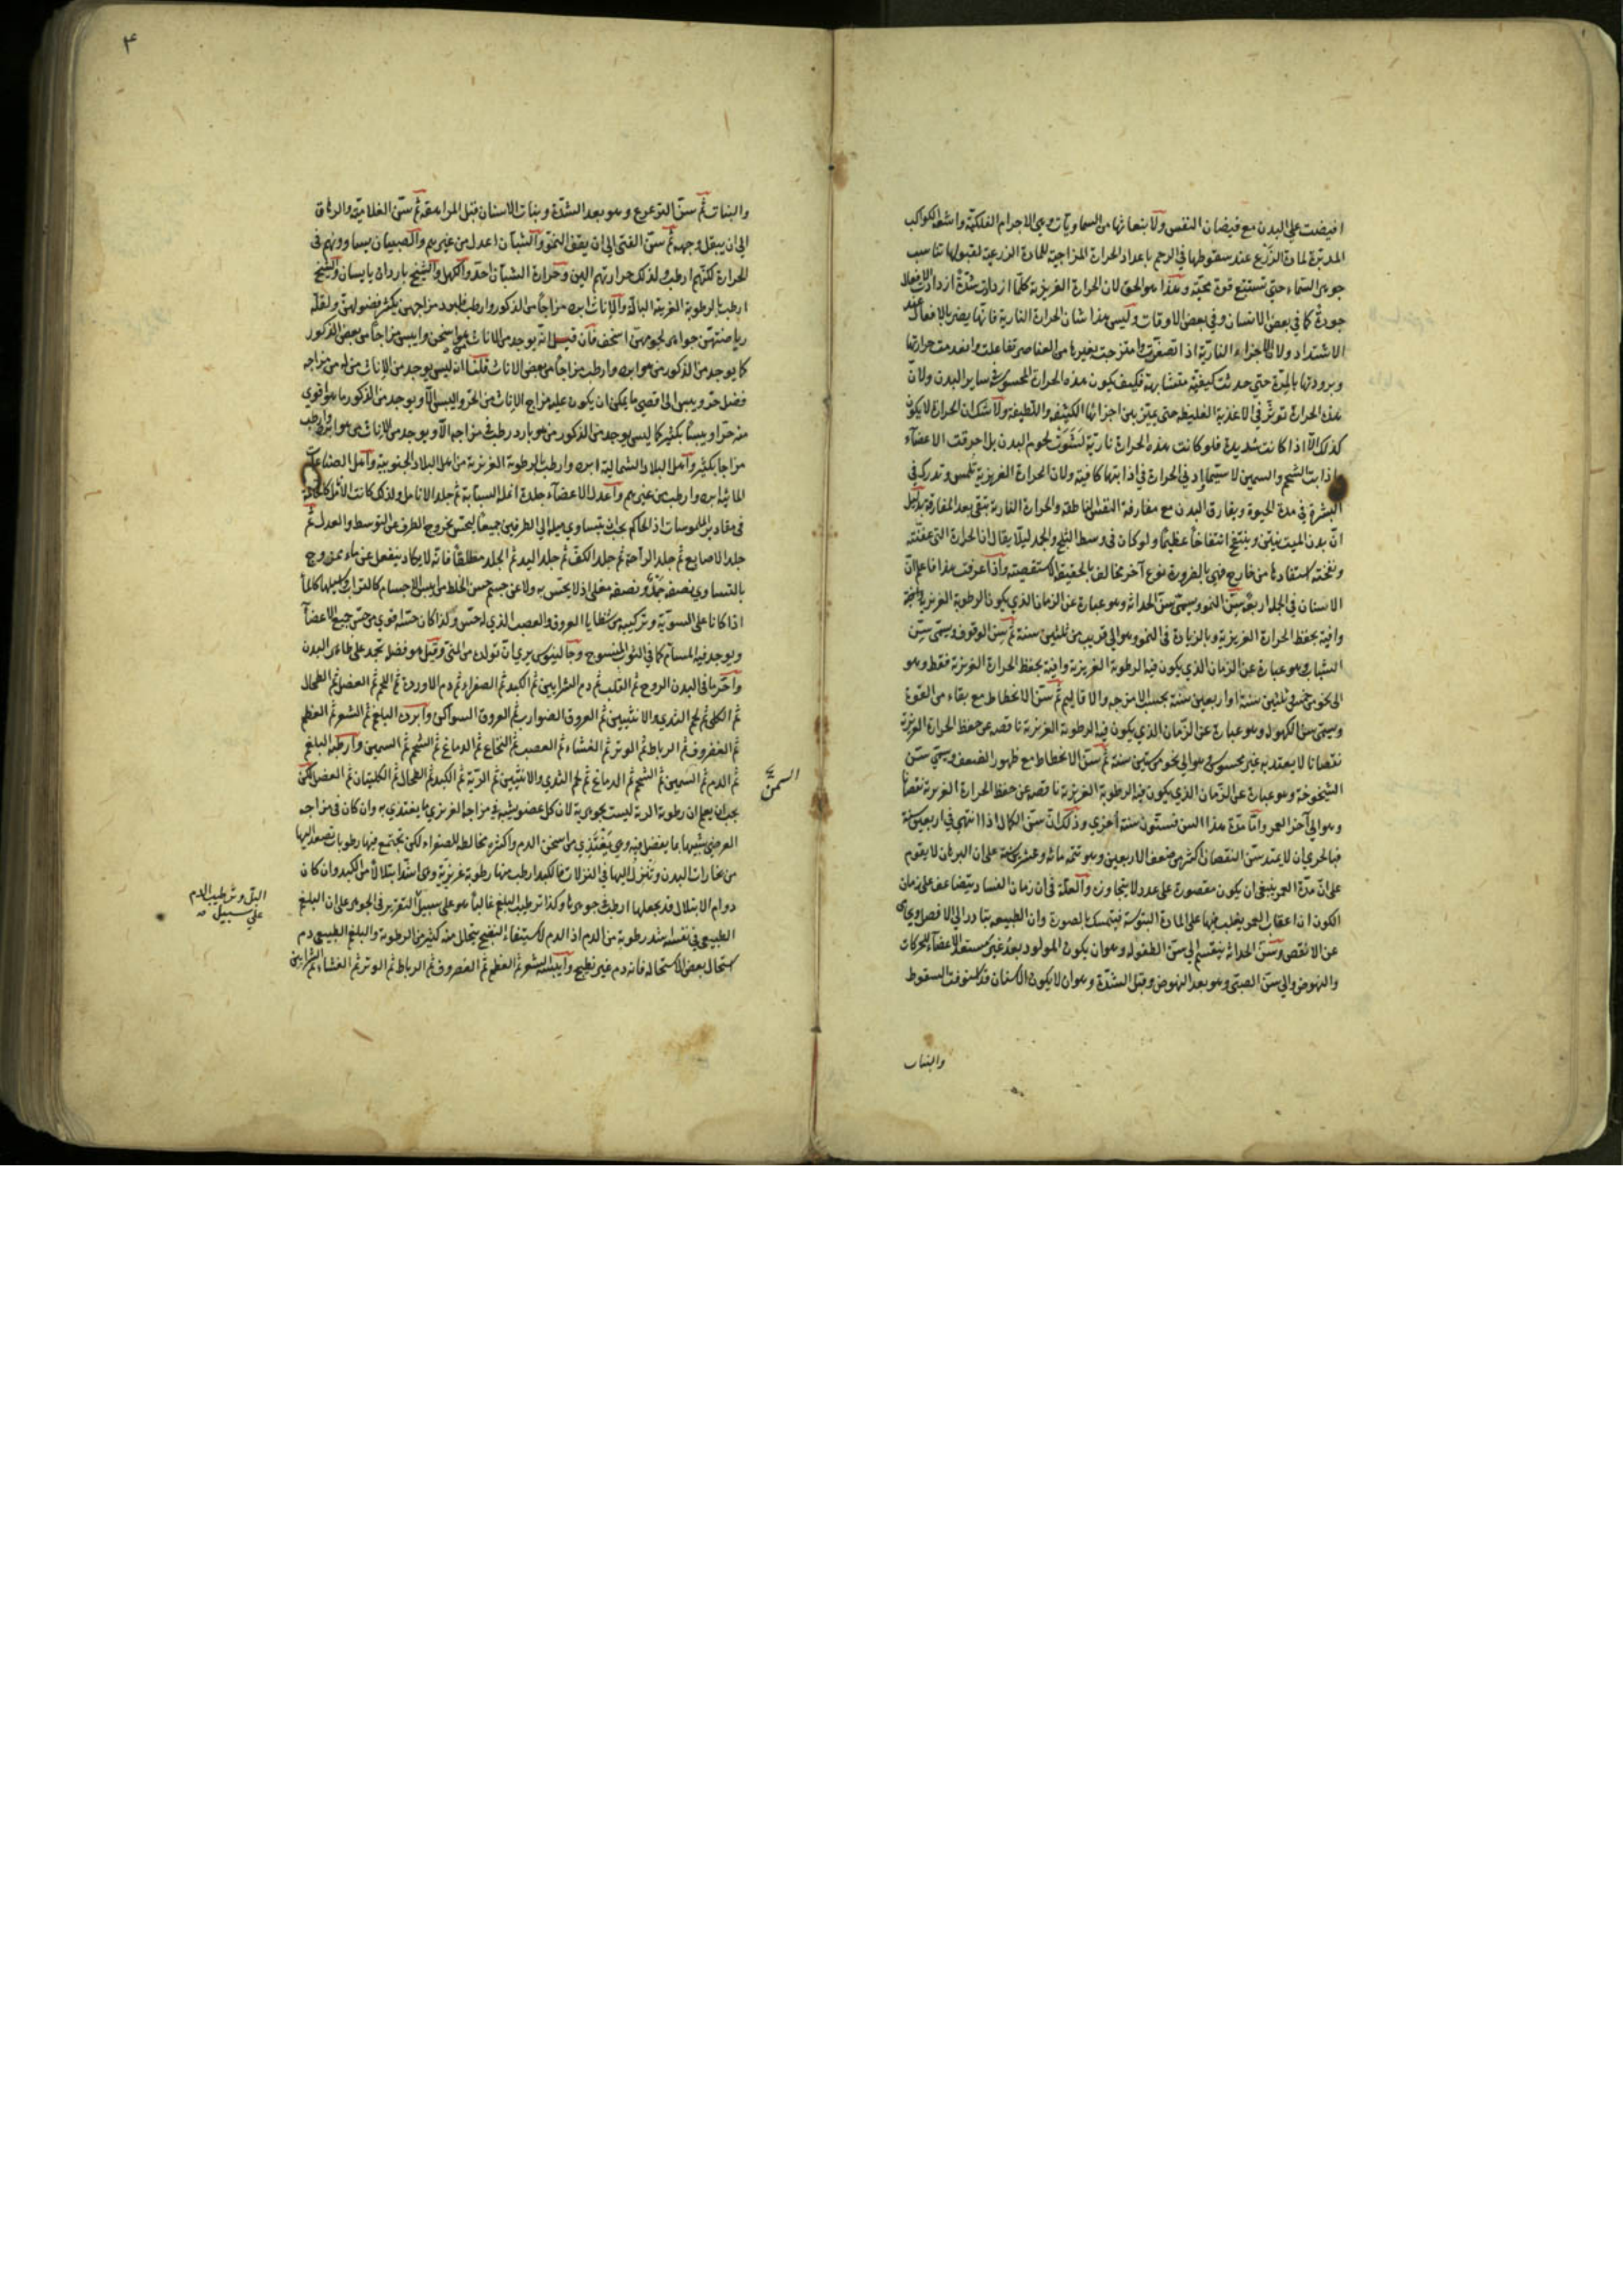 افيضت علي البدن مع فيضان النفس ولانبعاثها من السماويات وهي الاجرام الفلكية واشعة الكواكب
المدبرة لمادة الزرع عند سقوطها في الرحم باعداد الحرارة المزاجية للمادة الزرعية لقبولها تناسب
جوهر السماء حتي تستتبع قوة محيية وهذا هو الحق لان الحرارة الغريزية كلما ازدادت شدة ازدادت الافعال
جودة كما في بعض الانسان وفي بعض الاوقات وليس هذا شان الحرارة النارية فانها يضر بالافعال عند
الاشتداد ولان الاجزاء النارية اذا تصغرت وامتزجت بغيرها من العناصر تفاعلت وانعدمت حرارتها
وبرودتها بالمرة حتي حدثت كيفية متشابهة فكيف يكون هذه الحرارة المحسوسة في ساير البدن ولان
هذه الحرارة تؤثر في الاغذية الغليظة حتي يميز بين اجزائها الكثيفة واللطيفة ولا شك ان الحرارة لا يكون
كذلك الا اذا كانت شديدة فلو كانت هذه الحرارة نارية لشوت لحوم البدن بل احرقت الاعضآء
واذابت الشحم والسمين لا سيما وادني الحرارة في اذابتها كافية ولان الحرارة الغريزية تلمس وتدرك في
البشرة في مدة الحيوة ويفارق البدن مع مفارقة النفس الناطقة والحرارة النارية تبقي بعد المفارقة بدليل
ان بدن الميت ينتن وينتفخ انتفاخا عظيما ولو كان في وسط الثلج والجمد ليلا يقال ان الحرارة التي عفنته
ونفخته استفادها من خارج فهي بالضرورة نوع آخر مخالف بالحقيقة الاستقصية واذا عرفت هذا فاعلم ان
الاسنان في الجملة اربعة سن النمو ويسمي سن الحداثة وهو عبارة عن الزمان الذي يكون الرطوبة الغريزية
وافية بحفظ الحرارة الغريزية وبالزيادة في النمو وهو الي قريب من ثلثين سنة ثم سن الوقوف ويسمي سن
الشباب وهو عبارة عن الزمان الذي يكون فيه الرطوبة الغريزية وافية بحفظ الحرارة الغريزية فقط وهو
الي نحو من خمس وثلثين سنة او اربعين سنة بحسب الامزجة والاقاليم ثم سن الانحطاط مع بقاء من القوة
ويسمي سن الكهول وهو عبارة عن الزمان الذي يكون فيه الرطوبة الغريزية ناقصة عن حفظ الحرارة الغريزية
نقصانا لا يعتد به غير محسوس وهو الي نحو من ستين سنة ثم سن الانحطاط مع ظهور الضعف ويسمي سن
الشيخوخة وهو عبارة عن الزمان الذي يكون فيه الرطوبة الغريزية ناقصة عن حفظ الحرارة الغريزية نقصانا
وهو الي آخر العمر واما مدة هذا السن فستون سنة اخري وذلك ان سن الكمال اذا انتهي في اربعين سنة
فبالحري ان لا يمتد سن النقصان اكثر من ضعف الاربعين وهو تتمة مائة وعشرين سنة علي ان البرهان لا يقوم
علي ان مدة العمر ينبغي ان يكون مقصورة علي عدد لا يتجاوزه والعلة في ان زمان الفساد يتضاعف علي زمان
الكون ان اعقاب العمر يغلب فيها علي المادة اليبوسة فيتمسك بالصورة وان الطبيعة يتادر الي الافضل
عن الانقص وسن الحداثة ينقسم الي سن الطفولة وهو ان يكون المولود بعد غير مستعد الاعضآء للحركات
والنهوض والي سن الصبي وهو بعد النهوض وقبل الشدة وهو ان لا يكون الاسنان قد استوفت السقوط
والبنات
٣
والنبات ثم سن الترعرع وهو بعد الشدة ونبات الاسنان قبل المراهقة ثم سن الغلامية والرهاق
الي ان يبقل وجهه ثم سن الفتي الي ان يقف النمو والشبان اعدل من غيرهم والصبيان يساوونهم في
الحرارة لكنهم ارطب ولذلك حرارتهم الين وحرارة الشبان احد والكهل والشيخ باردان يابسان والشيخ
ارطب بالرطوبة الغريبة البالة والاناث ابرد مزاجا من الذكور وارطب فلبرد مزاجهن يكثر فضولهن ولقلة
رياضتهن جواهر لحومهن اسخف فان قيل انه يوجد من الاناث من هو اسخن وايبس مزاجا من بعض الذكور
كما يوجد من الذكور من هو ابرد وارطب مزاجا من بعض الاناث قلنا انه ليس يوجد من الاناث من له من مزاجه
فضل حر ويبس الي اقصي ما يمكن ان يكون عليه مزاج الاناث من الحر واليبس الا ويوجد من الذكور ما هو اقوي
منه حرا ويبسا بكثير كما ليس يوجد من الذكور من هو بارد رطب في مزاجه الا ويوجد من الاناث من هو ابرد وارطب
مزاجا بكثير واهل البلاد الشمالية ابرد وارطب بالرطوبة الغريزية من اهل البلاد الجنوبية واهل الصناعات
المائية ابرد وارطب من غيرهم واعدل الاعضآء جلدة انملة السبابة ثم جلد الانامل ولذلك كانت الانمل كالحاكمة
في مقادير الملموسات اذ الحاكم يجب ان يتساوي ميله الي الطرفين جميعا ليحس بخروج الطرف عن التوسط والعدل ثم
جلد الاصابع ثم جلد الراحة ثم جلد الكف ثم جلد اليد ثم الجلد مطلقا فانه لا يكاد ينفعل عن ماء ممزوج
بالتساوي نصفه جمد ونصفه مغلي اذ لا يحس به ولا عن جسم حسن الخلط من ايبس الاجسام كالتراب وسيلها كالماء
اذا كانا علي السوية وتركيبه من شظايا العروق والعصب الذي له حس ولذا كان حسه اقوي من حس جميع الاعضآ
ويوجد فيه المسام كما في الثوب المنسوج وجالينوس يري ان تولده من المني وقيل هو فضل تجمد علي ظاهر البدن
واحر ما في البدن الروح ثم القلب ثم دم الشرايين ثم الكبد ثم الصفراء ثم دم الاوردة ثم اللحم ثم العضل ثم الطحال
ثم الكلي ثم لحم الثدي والانثيين ثم العروق الضوارب ثم العروق السواكن وابرده البلغم ثم الشعر ثم العظم
ثم الغضروف ثم الرباط ثم الوتر ثم الغشاء ثم العصب ثم النخاع ثم الدماغ ثم الشحم ثم السمين وارطبه البلغم
ثم الدم ثم السمين ثم الشحم ثم الدماغ ثم لحم الثدي والانثيين ثم الرية ثم الكبد ثم الطحال ثم الكليتان ثم العضل لكن
يجب ان يعلم ان رطوبة الرية ليست بجوهرية لان كل عضو يشبه في مزاجه الغريزي ما يغتذي به وان كان في مزاجه
العرضي يشبهها ما يفضل فيه وهي يغتذي من اسخن الدم واكثره مخالطة للصفراء لكن تجتمع فيها رطوبات تصعد اليها
من بخارات البدن وتنزل اليها في النزلات فالكبد ارطب منها رطوبة غريزية وهي اشد ابتلالا من الكبد وان كان
دوام الابتلال قد يجعلها ارطب في جوهرها وكذا ترطيب البلغم غالبا هو علي سبيل التقرير في الجوهر علي ان البلغم
الطبيعي في نفسه اشد رطوبة من الدم اذ الدم لاستيفاء النضج يتحلل منه كثير من الرطوبة والبلغم الطبيعي دم
استحال بعض الاستحالة فانه دم غير نضيج وايبسه الشعر ثم العظم ثم الغضروف ثم الرباط ثم الوتر ثم الغشاء ثم الشرايين
السمن
البل وترطيب الدم
علي سبيل